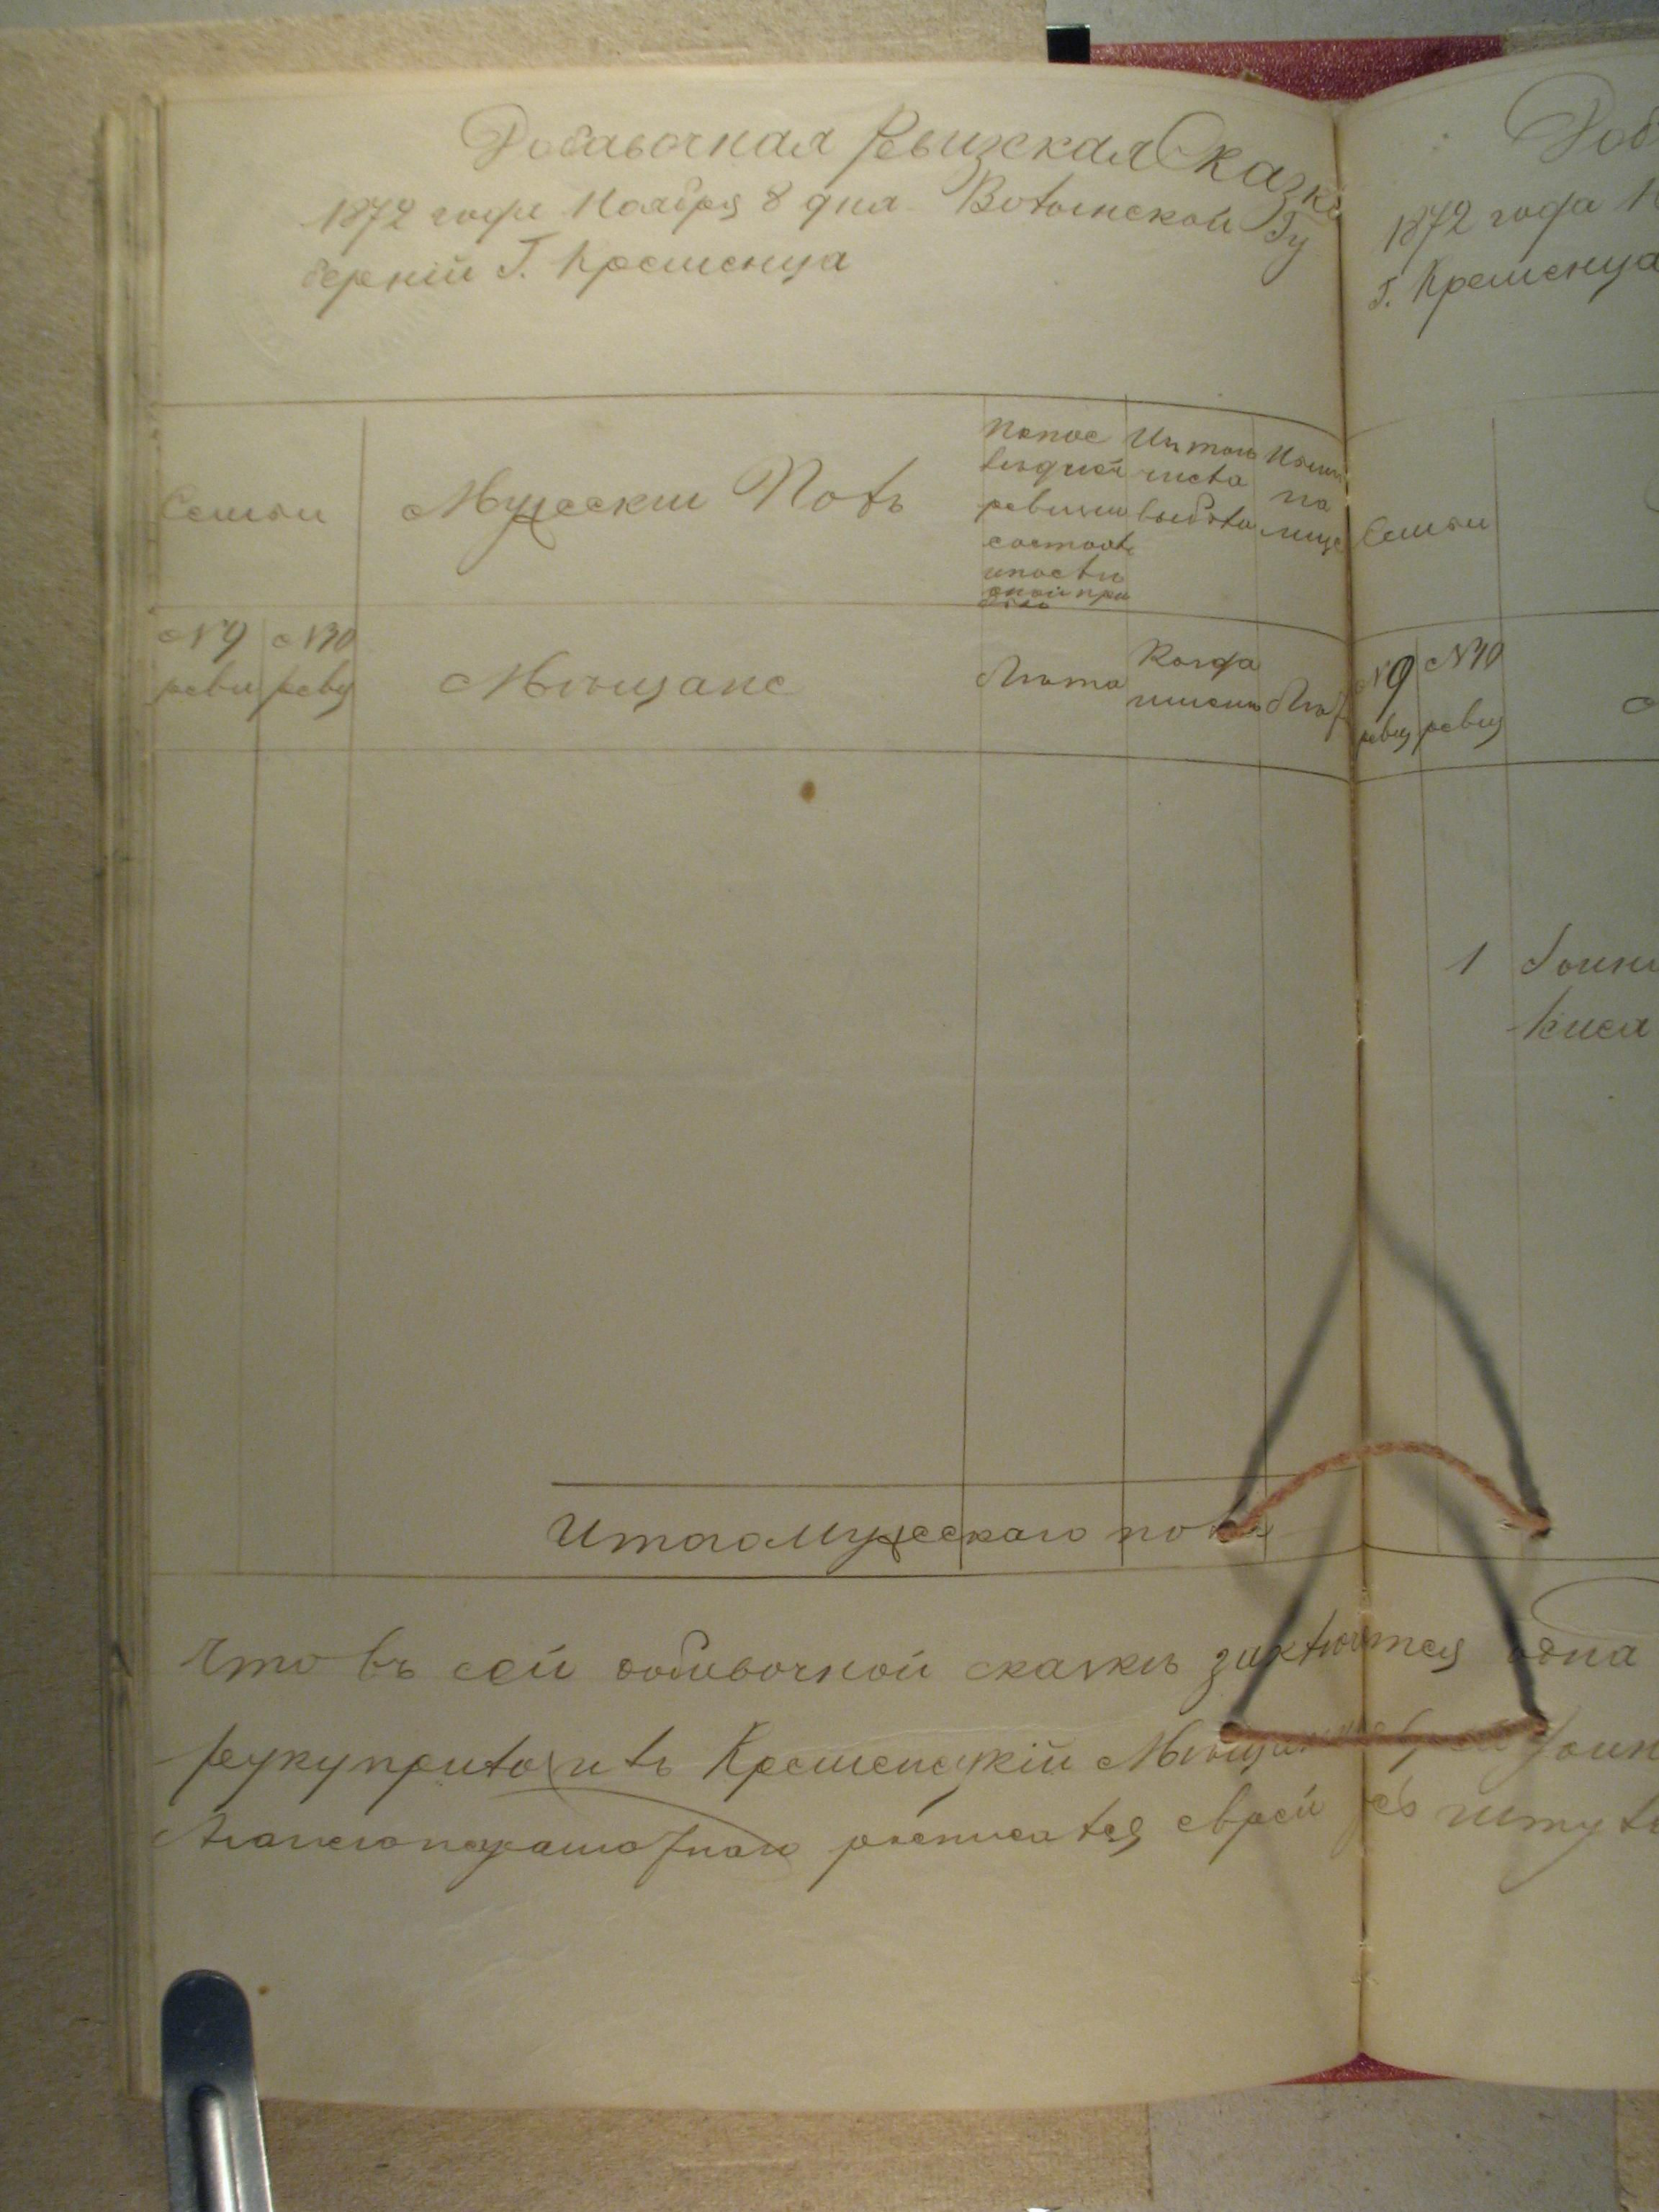 Добавочная Ревизская Сказка
1872 года Ноября 8 дня Волынской Гу
берніи Г. Кременца
Семьи
Мужескій Полъ
По пос
лѣдней
ревизіи
состояло
и послѣ
оной при
было
Изъ того
числа
выбыло
Нынѣ
на
лице
№ 9
реви
№ 10
реви
Мѣщане
Лѣта
Когда
именно
Лѣта
Итого Мужескаго пола
Что въ сей добавочной сказкѣ заключается одна
руку приложилъ Кременецкій Мѣщанинъ
росписался еврей
Доб
1872 года Н
Г. Кременца
Семьи
№ 9
ревиз
№ 10
ревиз
1